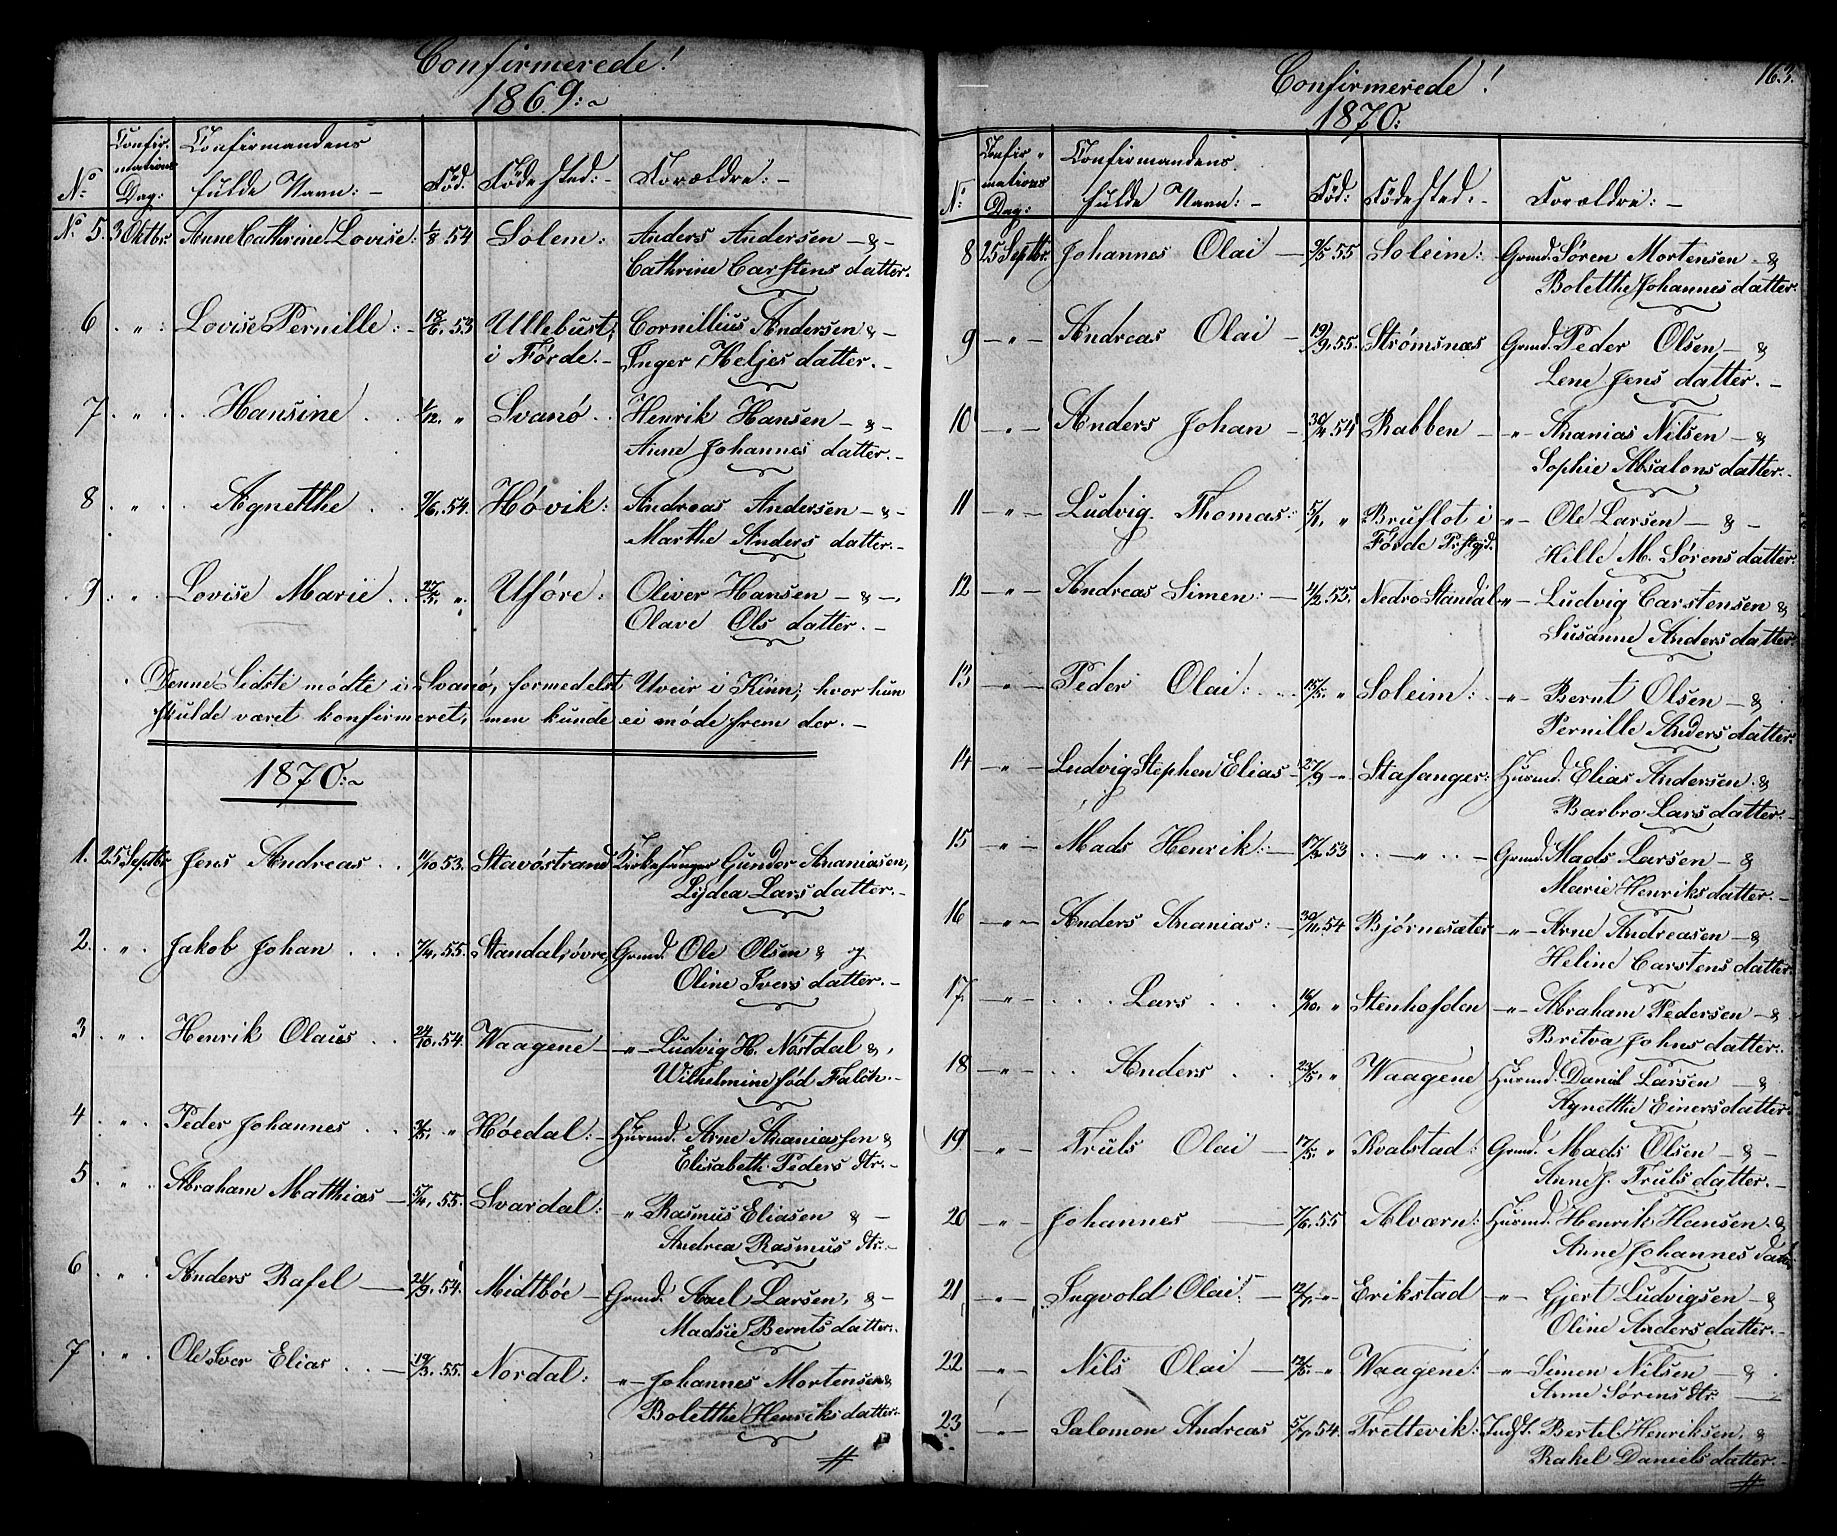 Confirmerede!
1869:~
No: Confirmations Dag: Confirmandens fulde Navn: Fød. Fødested: Forældre:
No 5. 3 Oktbr. Anne Cathrine Lovise: 1/8 54 Solem: Anders Andersen - & -
Cathrine Carstens datter.
6 " Lovise Pernille: 18/6. 53 Ullebust, Cornillius Andersen & -
i Førde. - Inger Heljes datter. -
7 " Hansine 1/12. " Svanø Henrik Hansen - & -
Anne Johannes datter. -
8 " Agnetthe 9/6. 54. Høvik: Andreas Andersen - & -
Marthe Anders datter. -
9 " Lovise Marie 27/3. " Uføre: Oliver Hansen - & -
Olave Ols datter. -
Denne Sidste mødte i Svanø, formedelst Uveir i Kinn, hvor hun
skulde været konfirmeret, men kunde ei møde frem der. -
1870:~
1. 25 Septbr. Jens Andreas 11/10 53. Stavøstrand Kirkesanger Gunder Ananiasen,
Lydea Lars datter. -
2. " Jakob Johan 7/4. 55. Standal, øvre, Grmd. Ole Olsen & og
Oline Ivers datter. -
3 " Henrik Olaus 24/10. 54. Waagene " Ludvig H. Nøstdal &,
Wilhelmine fød Falch. -
4 " Peder Johannes " Høedal: Husmd. Arne Ananiassen &
Elisabeth Peders dtr. -
5 " Abraham Matthias 5/4. 55. Svardal: " Rasmus Eliasen & -
Andrea Rasmus dtr. -
6 " Anders Rafel 21/9. 54. Midtbøe Grmd. Axel Larsen, & -
Madsie Bernts datter.
7 " Ole Iver Elias 19/3. 55. Nordal: " Johannes Mortensen &
Boletthe Henriks datter. -
#
163.
Confirmerede!
1870:
No: Confirmations Dag: Confirmandens fulde Navn: - Fød: Fødested. Forældre: -
8 25 Septbr. Johannes Olai 9/5 55 Soleim: Grmd. Søren Mortensen - &
Boletthe Johannes datter
9 " Andreas Olai 19/9. 55. Strømsnæs Grmd. Peder Olsen - &
Lene Jens datter. -
10 " Anders Johan 30/11 54 Rabben " Ananias Nilsen - &
Sophie Absalons datter. -
11 " Ludvig Thomas: 5/1. " Bruflot i " Ole Larsen - & -
Førde Prstgjd. Hille M. Sørens datter.
12 " Andreas Simen: 4/2 55. Nedre Standal " Ludvig Carstensen &
Susanne Anders datter.
13 " Peder Olai: 15/5. " Soleim: " Bernt Olsen - &
Pernille Anders datter.
14 " Ludvig Stephen Elias 27/9 " Stafanger: Husmd. Elias Andersen. &
Barbro Lars datter. -
15 " Mads Henrik: 17/3 53 " Grmd. Mads Larsen - &
Marie Henriks datter. -
16 " Anders Ananias: 30/11. 54 Bjørnesæter " Arne Andreasen - &
Heline Carstens datter.
17 " Lars 16/10. " Stenhofden " Abraham Pedersen - &
Britva Johns datter.
18 " Anders 23/5. " Waagene Husmd. Daniel Larsen - &
Agnetthe Einers datter.
19 " Truls Olai 17/5. " Kvalstad: Grmd. Mads Olsen - & -
Anne J. Truls datter. -
20 " Johannes 7/6. 55 Alværn: Husmd. Henrik Hansen. &
Anne Johannes datter
21 " Ingvold Olai: 12/7. " Erikstad " Gjert Ludvigsen - &
Oline Anders datter. -
22 " Nils Olai 12/5. " Waagene: " Simen Nilsen - &
Anne Sørens dtr.
23 " Salomon Andreas 5/7. 54. Trettevik: Indst. Bertel Henriksen, &
Rakel Daniels datter. -
#